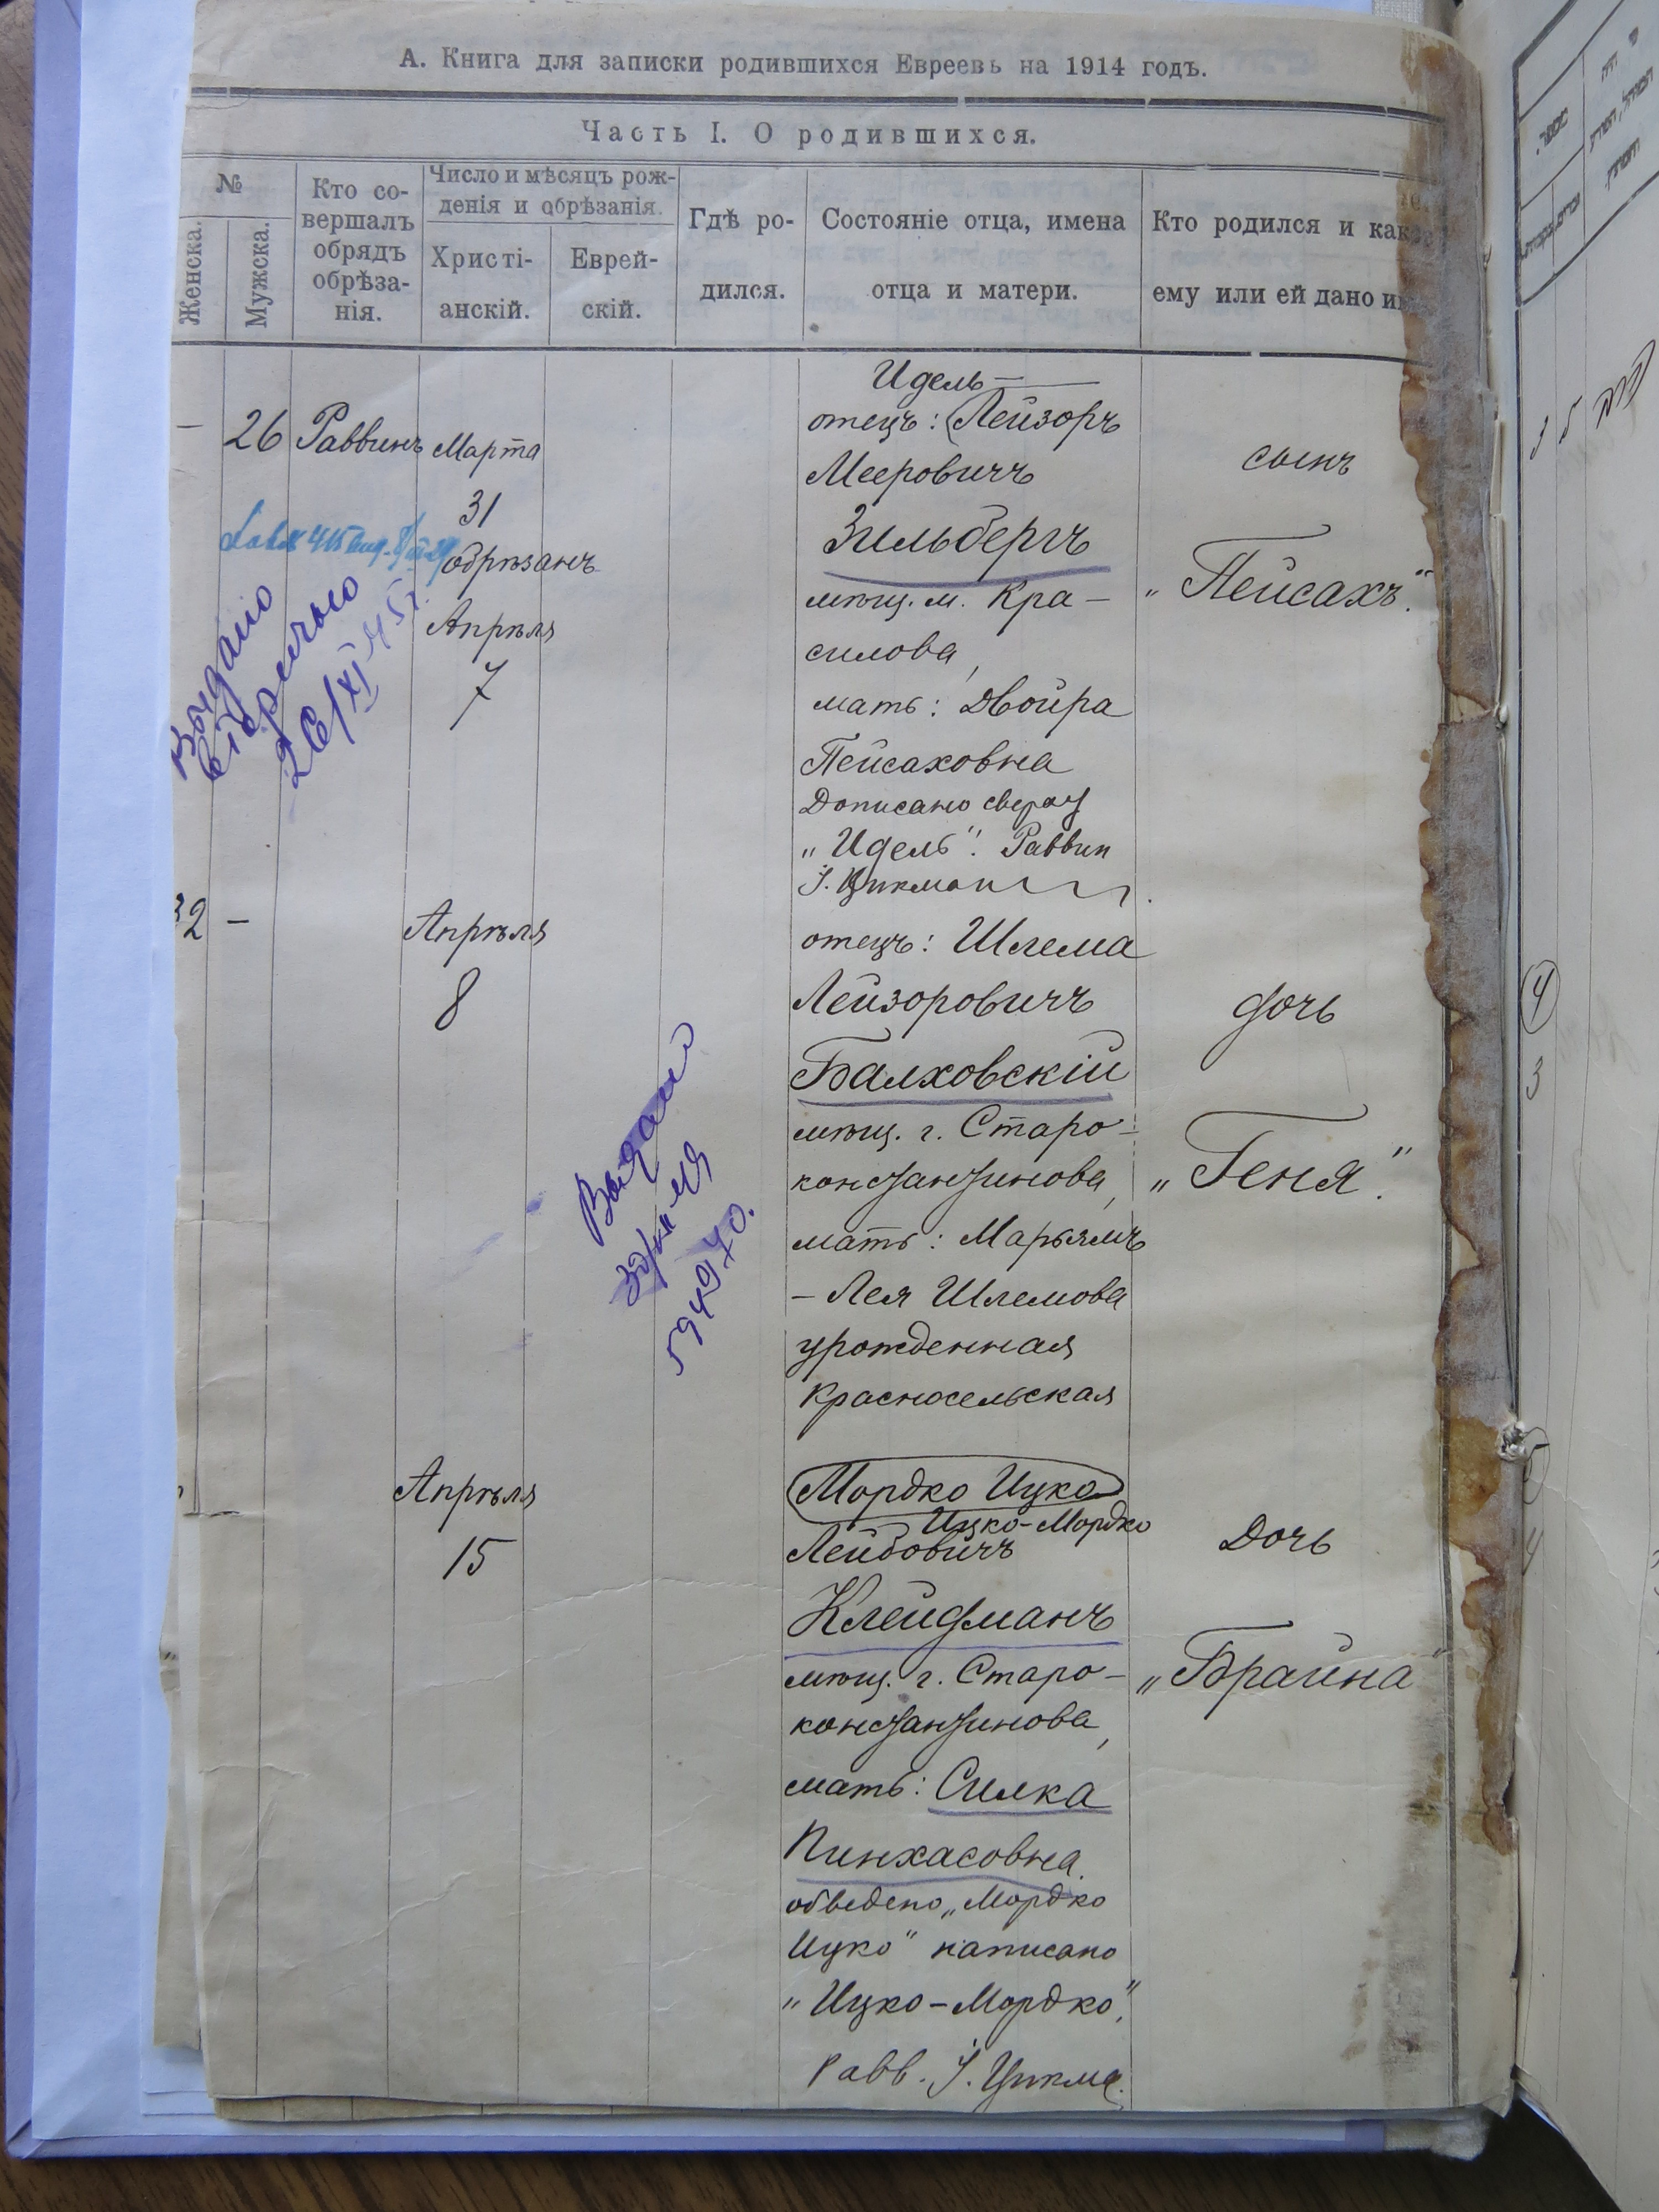 А. Книга для записки родившихся Евреевъ на 1914 годъ.
Часть I. О родившихся.
№
Женска.
Мужска.
Кто со-
вершалъ
обрядъ
обрѣза-
нія.
Число и мѣсяцъ рож-
денія и обрѣзанія.
Христі-
анскій.
Еврей-
скій.
Гдѣ ро-
дился.
Состояніе отца, имена
отца и матери.
Кто родился и как
ему или ей дано и
— 26 Раввинъ Марта
31
обрѣзанъ
Апрѣля
7
Выдано
вторичаю
26/XI 45 г.
Идель —
отецъ: (Лейзоръ
Мееровичъ
Зильбергъ
мѣщ. м. Кра-
силова,
мать: Двойра
Пейсаховна
Дописано сверху
„Идель". Раввин
І. Цикман
сынъ
„Пейсахъ".
32 —
Апрѣля
8
Выдан
594970.
отецъ: Шлема
Лейзоровичъ
Балховскій
мѣщ. г. Старо-
константинова,
мать: Марьямъ
- Лея Шлемова
урожденная
Красносельская
дочь
„Геня".
Апрѣля
15
Мордко Ицко
Ицко-Мордко
Лейбовичъ
Клейдманъ
мѣщ. г. Старо-
константинова,
мать: Силка
Пинхасовна.
обведено „Мордко
Ицко" написано
„Ицко-Мордко".
Равв. І. Цикма
Дочь
„Брайна"
3 5
4
3